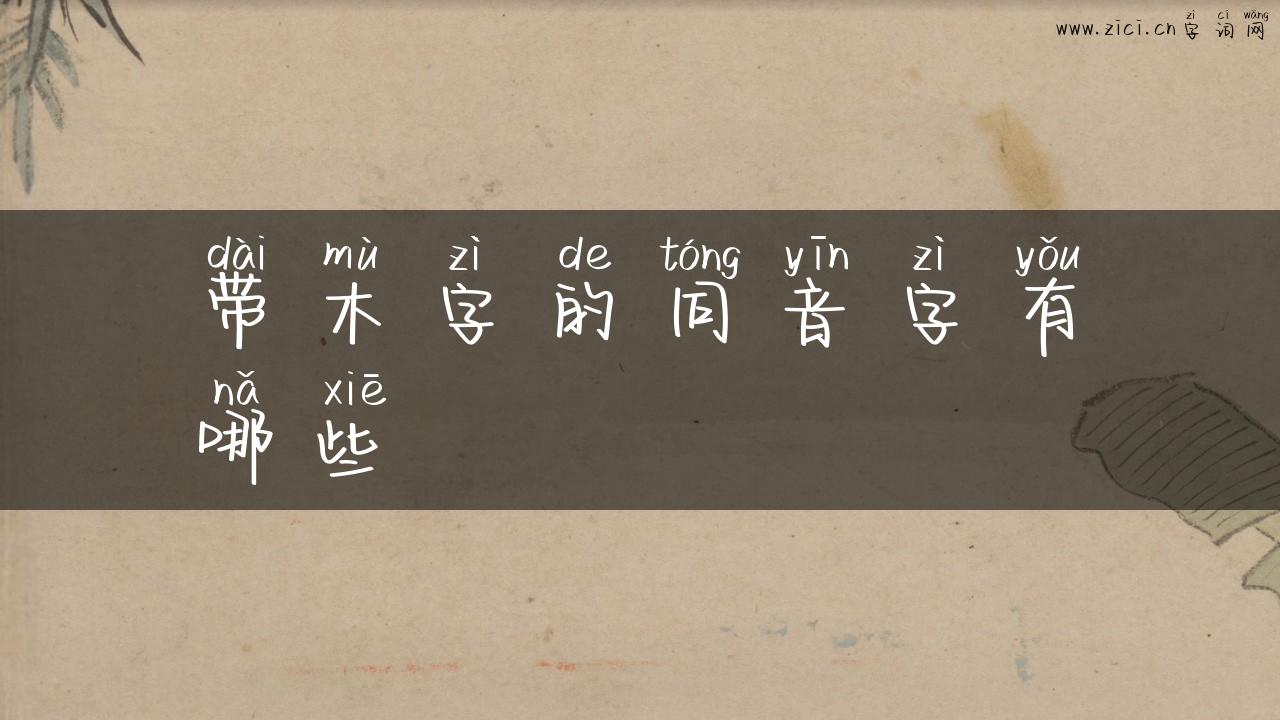 zì cí wǎng
www.zici.cn 字 词 网
dài mù zì de tóng yīn zì yǒu
带 木 字 的 同 音 字 有
nǎ xiē
哪 些